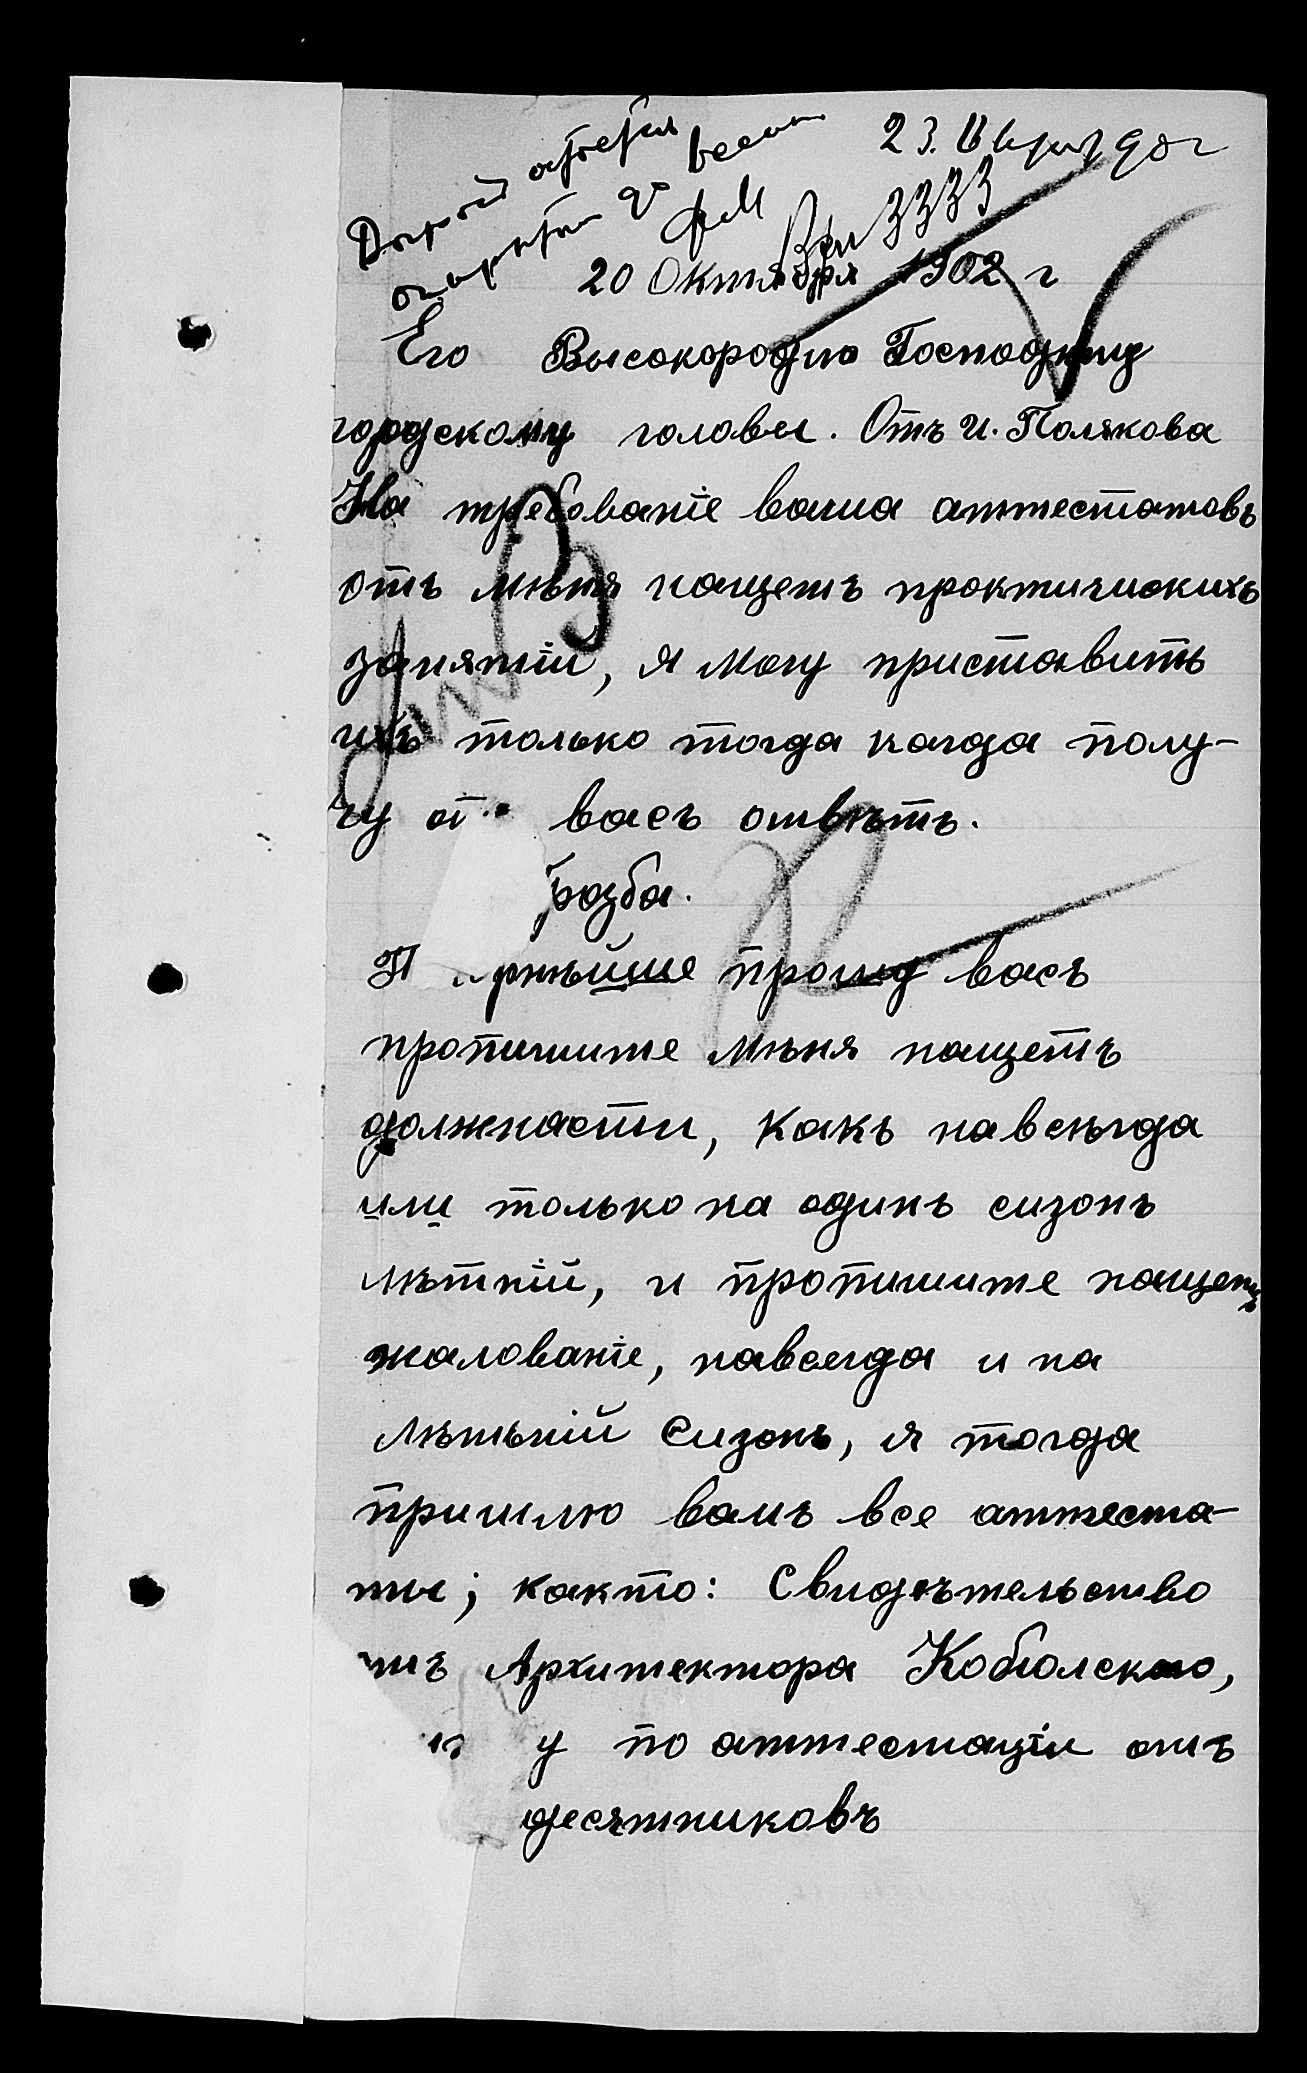 23. 
3333
20 Октября 1902 г
Его Высокородию Господину
городскому головы. Отъ И. Полякова
На требованіе ваша аттестатовъ
отъ мѣня нащетъ проктичискихъ
занятіи, я могу приставить
ихъ только тогда когда полу-
чу от васъ отвѣтъ.
розба.
прошу васъ
пропишите мѣня нащетъ
должности, какъ навсѣгда
или только на одинъ сизонъ
лѣтній, и пропишите нащетъ
жалованіе, навсегда и на
лѣтьній Сизонъ, я тогда
пришлю вамъ все аттеста-
ты; както: Свидѣтельство
отъ Архитектора Кобіолскаго,
у по аттестаціи отъ
десятниковъ